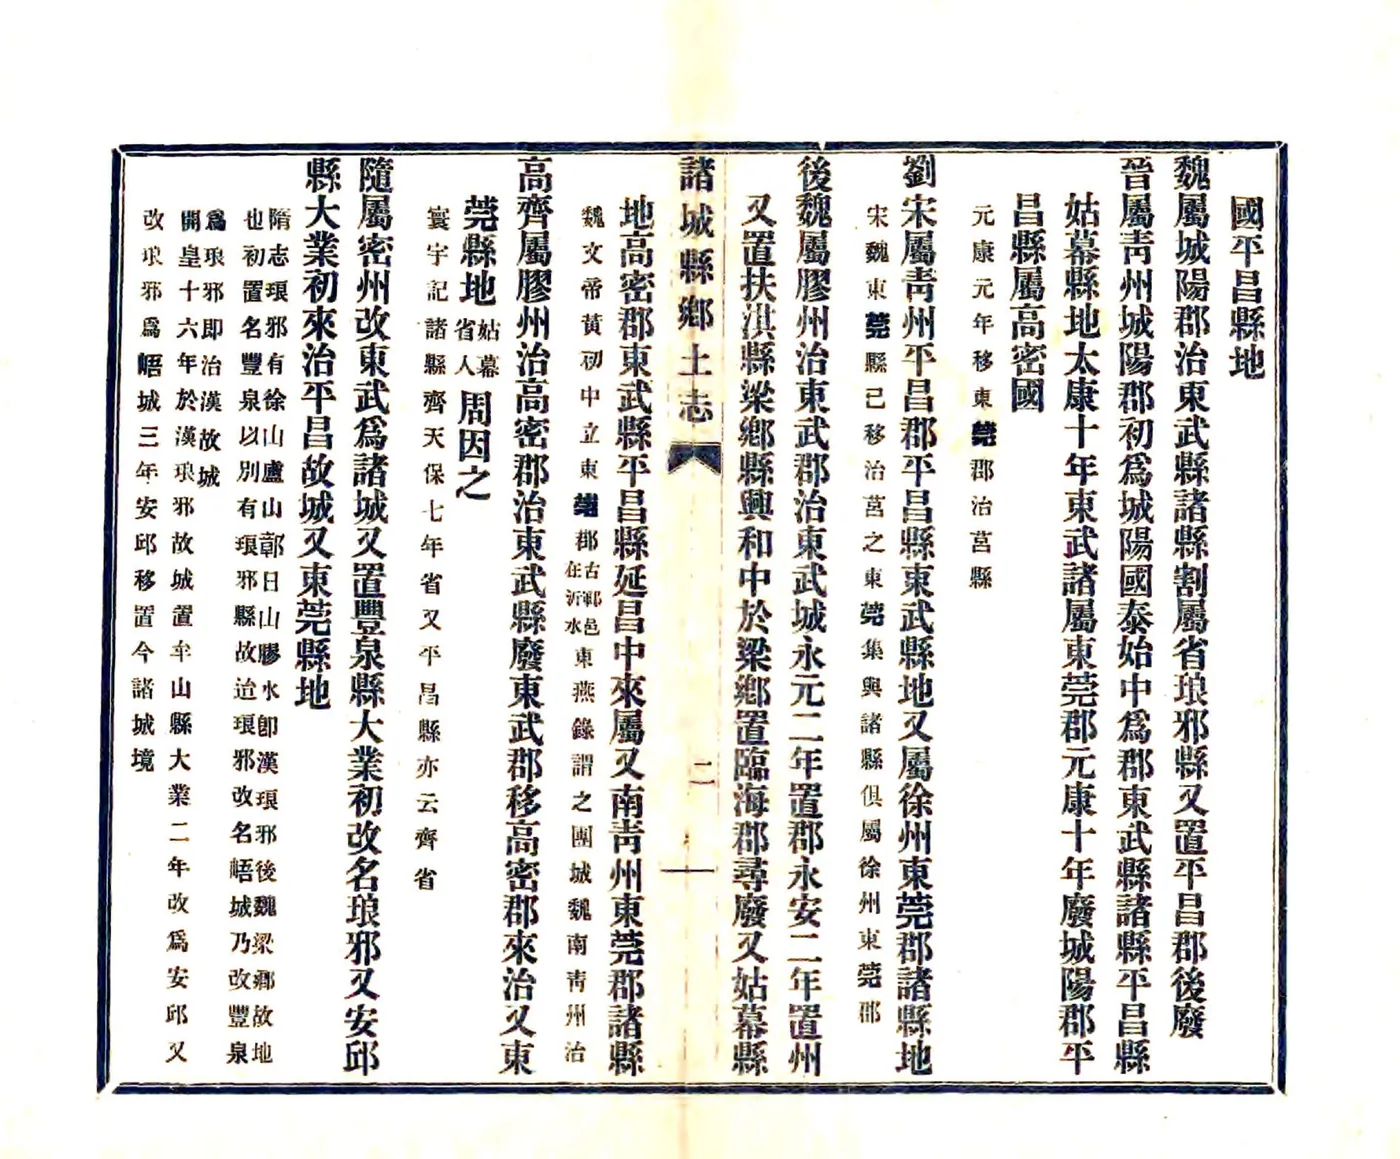 國平昌縣地
魏屬城陽郡治東武縣諸縣割屬省琅邪縣又置平昌郡後廢
晉屬靑州城陽郡初爲城陽國泰始中爲郡東武縣諸縣平昌縣
姑幕縣地太康十年東武諸屬東莞郡元康十年廢城陽郡平
昌縣屬高密國
元康元年移東莞郡治莒縣
劉宋屬靑州平昌郡平昌縣東武縣地又屬徐州東莞郡諸縣地
宋魏東莞縣已移治莒之東莞集與諸縣俱屬徐州東莞郡
後魏屬膠州治東武郡治東武城永元二年置郡永安二年置州
又置扶淇縣梁鄉縣興和中於梁鄉置臨海郡尋廢又姑幕縣
諸城縣鄉土志
二
地高密郡東武縣平昌縣延昌中來屬又南靑州東莞郡諸縣
魏文帝黃初中立東莞郡古鄆邑在沂水東燕錄謂之團城魏南靑州治
高齊屬膠州治高密郡治東武縣廢東武郡移高密郡來治又東
莞縣地姑幕省入周因之
寰宇記諸縣齊天保七年省又平昌縣亦云齊省
隨屬密州改東武爲諸城又置豐泉縣大業初改名琅邪又安邱
縣大業初來治平昌故城又東莞縣地
隋志琅邪有徐山盧山鄣日山膠水卽漢琅邪後魏梁鄉故地
也初置名豐泉以別有琅邪縣故迨琅邪改名郚城乃改豐泉
爲琅邪卽治漢故城
開皇十六年於漢琅邪故城置牟山縣大業二年改爲安邱又
改琅邪爲郚城三年安邱移置今諸城境